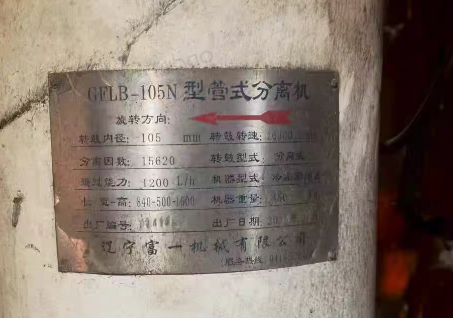 GFLB-105N 型管式分离机
旋转方向:
转鼓内径: 105 mm 转鼓转速:
分离因数: 15620 转鼓型式: 分离式
通过能力: 1200 L/h 机器型式:
长-宽-高: 840-500-1600 机器重量:
出厂编号: 出厂日期: 20
辽宁富一机械有限公司
服务热线: